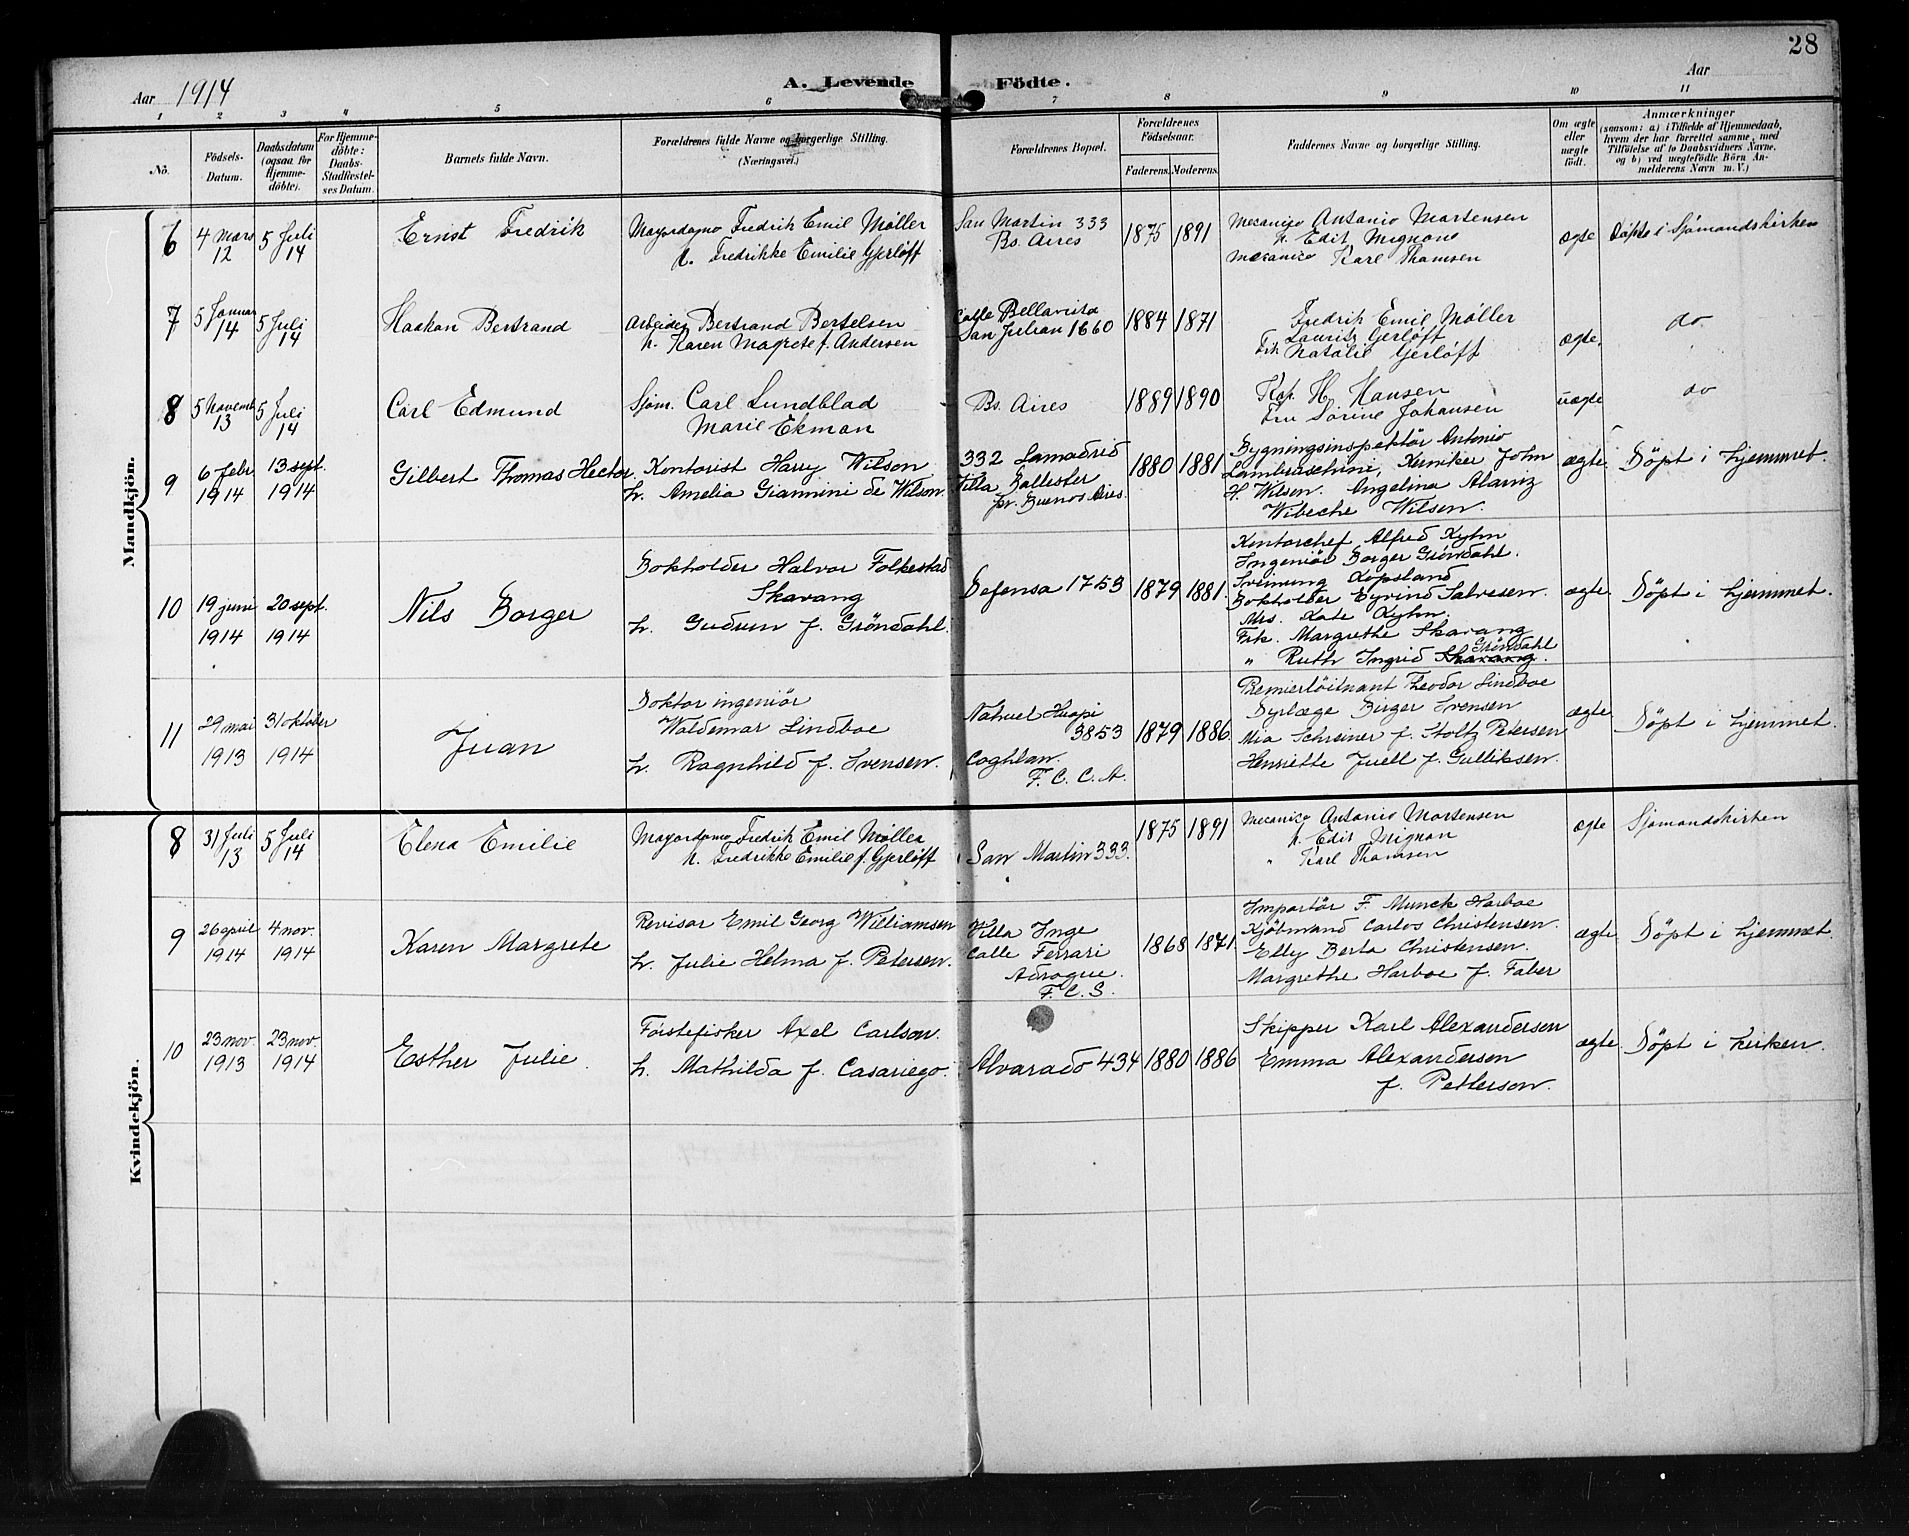 28
Aar 1914
A. Levende Födte.
Aar
1 2 3 4 5 6 7 8 9 10 11
No.
Födsels-Datum.
Daabsdatum (ogsaa for Hjemme-döbte).
For Hjemme-döbte: Daabs-Stadfæstel-ses Datum.
Barnets fulde Navn.
Forældrenes fulde Navne og borgerlige Stilling. (Næringsvei.)
Forældrenes Bopæl.
Forældrenes Fødselsaar.
Faderens. Moderens.
Faddernes Navne og borgerlige Stilling.
Om ægte eller uægte födt.
Anmærkninger
(saasom: a) i Tilfælde af Hjemmedaab, hvem der har forrettet samme, med Tilföielse af to Daabsvidners Navne, og b) ved uægtefödte Börn An-melderens Navn m. V.)
Mandkjön.
6
4 Mars 12
5 Juli 14
Ernst Fredrik
Mayordomo Fredrik Emil Møller
h. Fredrikke Emilie Gjerløff
San Martin 333
Bs. Aires
1875 1891
Mecanico Antonio Mortensen
h. Edit Mignon
Mecanico Karl Thomsen
ægte
Døpte i Sjømandskirken
7
5 Januar 14
5 Juli 14
Haakon Bertrand
Arbeider Bertrand Bertelsen
h. Karen Magrete f. Andersen
Calle Bellavista
San Julian 1660
1884 1871
Fredrik Emil Møller
Lauritz Gerløff
Frk Natalie Gerløff
ægte.
do
8
5 Novemb 13
5 Juli 14
Carl Edmund
Sjøm. Carl Lundblad
Marie Ekman
Bs. Aires
1889 1890
Kap. H. Hansen
Fru Sørine Johansen
uægte
do
9
6 febr 1914
13 sept. 1914
Gilbert Thomas Hector
Kontorist Harry Wilson
h. Amelia Giannini de Wilson.
332 Lamadrid
Villa Ballester
pr. Buenos Aires.
1880 1881
Bygningsinspektör Antonio
Lambraschini, Kemiker John
H. Wilson. Angelina Alaniz
Wibeche Wilson.
ægte
Döpt i hjemmet.
10
19 juni 1914
20 sept. 1914
Nils Borger
Bokholder Halvor Folkestad
Skavang
h. Gudrun f. Gröndahl.
Defensa 1753
1879 1881.
Kontorchef Alfred Kyhn
Ingeniör Borger Gröndahl.
Sveinung Kopsland
Bokholder Eyvind Salvesen.
Mrs. Kate Kyhn.
Frk. Margrethe Skavang
" Ruth Ingrid Skavang. Gröndahl
ægte.
Döpt i hjemmet.
11
29 mai 1913
31 oktober 1914
Juan
Doktor ingeniör
Waldemar Lindboe
h. Ragnhild f. Svensen.
Nahuel Huapi
3853
Coghlan.
F. C. C. A.
1879 1886.
Premierlöitnant Theodor Lindboe
Dyrlæge Birger Svensen
Mia Schreiner f. Stoltz Petersen
Henriette Juell f. Gulliksen.
ægte
Döpt i hjemmet.
Kvindekjön.
8
31 Juli 13
5 Juli 14
Elena Emilie
Mayordomo Fredrik Emil Møller
h. Fredrikke Emilie f. Gjerløff
San Martin 333.
1875 1891
Mecanico Antonio Mortensen
h. Edit Mignon
" Karl Thomsen
ægte
Sjømandskirken
9
26 april 1914
4 nov. 1914
Karen Margrete
Revisor Emil Georg Williamsen
h. Julie Helma f. Petersen.
Villa Inge
Calle Ferrari
Adrogue.
F. C. S.
1868 1871
Importör F. Munck Harboe
Kjöbmand Carlos Christensen.
Elly Berta Christensen.
Margrethe Harboe f. Faber
ægte.
Döpt i hjemmet.
10
23 nov. 1913
23 nov. 1914
Esther Julie.
Förstefisker Axel Carlson.
h. Mathilda f. Casariego.
Alvarado 434
1880 1886
Skipper Karl Alexandersen
Emma Alexandersen
f. Petterson.
ægte.
Döpt i kirken.